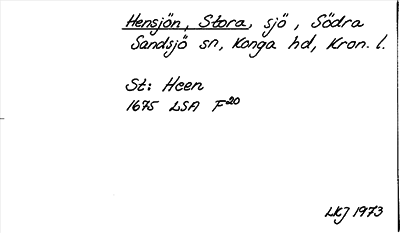 Hensjön, Stora, sjö, Södra
Sandsjö sn, Konga hd, Kron. l.
St: Heen
1675 LSA F20
LKJ 1973